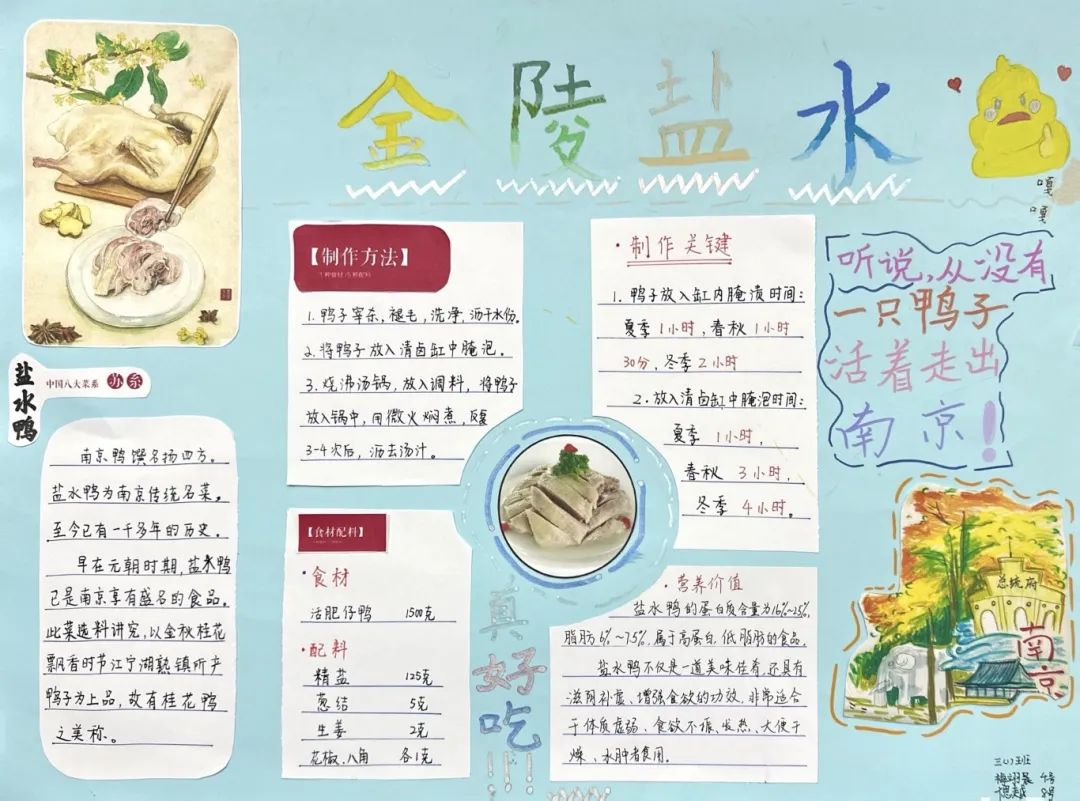 金陵盐水
嘎
嘎
盐水鸭
中国八大菜系 苏系
南京鸭馔名扬四方。
盐水鸭为南京传统名菜。
至今已有一千多年的历史。
早在元朝时期,盐水鸭
已是南京享有盛名的食品。
此菜选料讲究,以金秋桂花
飘香时节江宁湖熟镇所产
鸭子为上品,故有桂花鸭
之美称。
【制作方法】
1.鸭子宰杀,褪毛,洗净,沥干水份。
2.将鸭子放入清卤缸中腌泡。
3.烧沸汤锅,放入调料,将鸭子
放入锅中,用微火焖煮,反复
3-4次后,沥去汤汁。
【食材配料】
·食材
活肥仔鸭 1500克
·配料
精盐 125克
葱结 5克
生姜 2克
花椒、八角 各1克
真
好
吃
!!!
·制作关键
1.鸭子放入缸内腌渍时间:
夏季1小时,春秋1小时
30分,冬季2小时
2.放入清卤缸中腌泡时间:
夏季 1小时,
春秋 3小时,
冬季 4小时。
·营养价值
盐水鸭的蛋白质含量为16%~25%,
脂肪6%~7.5%,属于高蛋白,低脂肪的食品。
盐水鸭不仅是一道美味佳肴,还具有
滋阴补虚、增强食欲的功效,非常适合
于体质虚弱、食欲不振、发热、大便干
燥、水肿者食用。
听说,从没有
一只鸭子
活着走出
南京!
总统府
南京
三(1)班
4号
8号